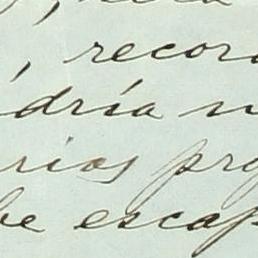 , recor
dría n
rias pro
be escap